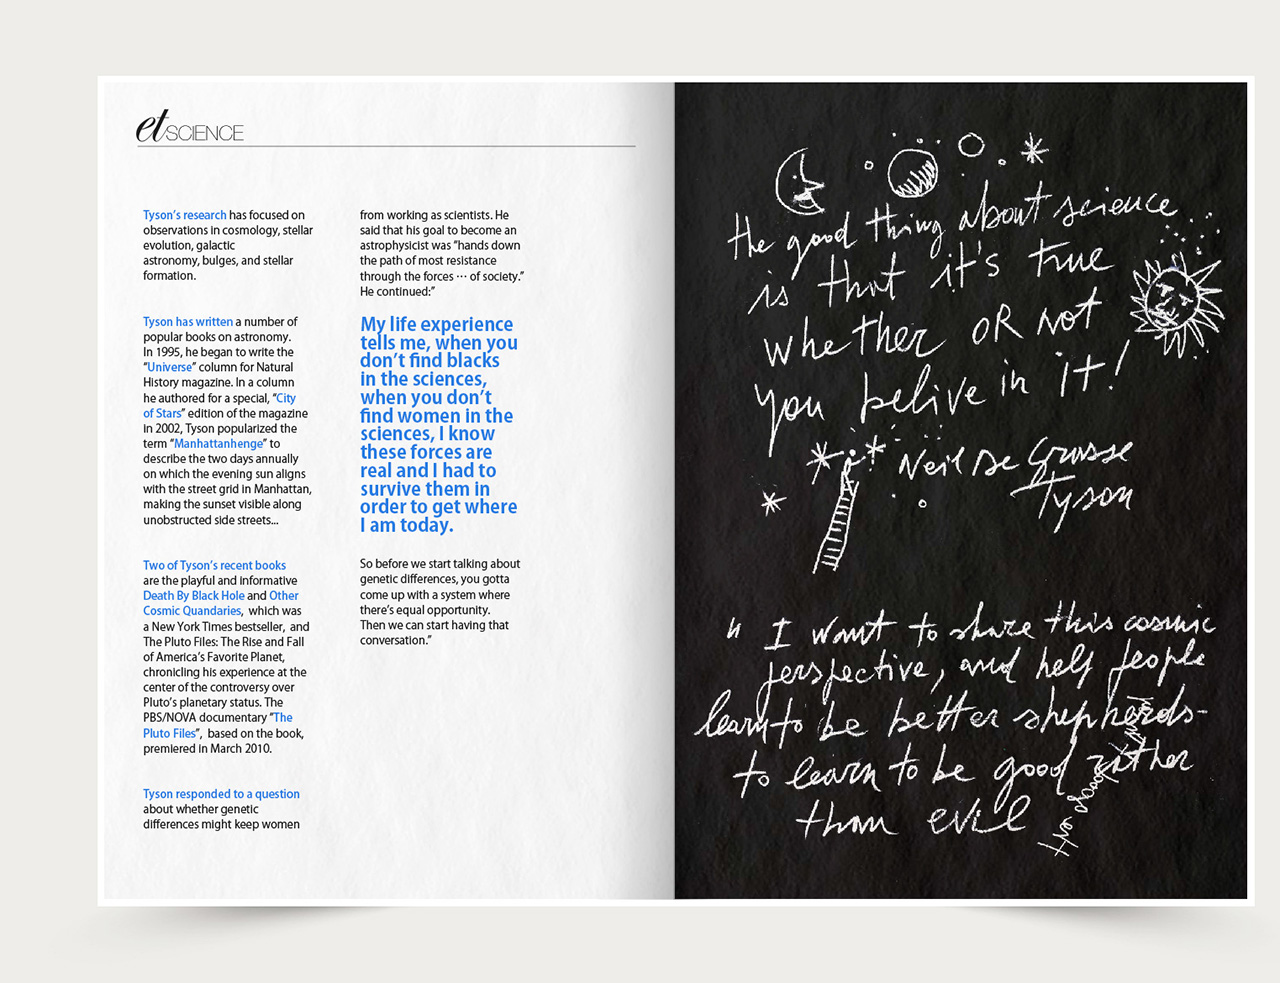 et SCIENCE
Tyson's research has focused on
observations in cosmology, stellar
evolution, galactic
astronomy, bulges, and stellar
formation.
Tyson has written a number of
popular books on astronomy.
In 1995, he began to write the
“Universe” column for Natural
History magazine. In a column
he authored for a special, “City
of Stars” edition of the magazine
in 2002, Tyson popularized the
term “Manhattanhenge” to
describe the two days annually
on which the evening sun aligns
with the street grid in Manhattan,
making the sunset visible along
unobstructed side streets...
Two of Tyson's recent books
are the playful and informative
Death By Black Hole and Other
Cosmic Quandaries, which was
a New York Times bestseller, and
The Pluto Files: The Rise and Fall
of America's Favorite Planet,
chronicling his experience at the
center of the controversy over
Pluto's planetary status. The
PBS/NOVA documentary “The
Pluto Files”, based on the book,
premiered in March 2010.
Tyson responded to a question
about whether genetic
differences might keep women
from working as scientists. He
said that his goal to become an
astrophysicist was “hands down
the path of most resistance
through the forces ··· of society.”
He continued:”
My life experience
tells me, when you
don't find blacks
in the sciences,
when you don't
find women in the
sciences, I know
these forces are
real and I had to
survive them in
order to get where
I am today.
So before we start talking about
genetic differences, you gotta
come up with a system where
there's equal opportunity.
Then we can start having that
conversation.”
the good thing about science
is that it's true
whether OR Not
you belive in it!
Neil De Grasse
Tyson
" I want to share this cosmic
perspective, and help people
learn to be better shepherds-
to learn to be good rather
than evil